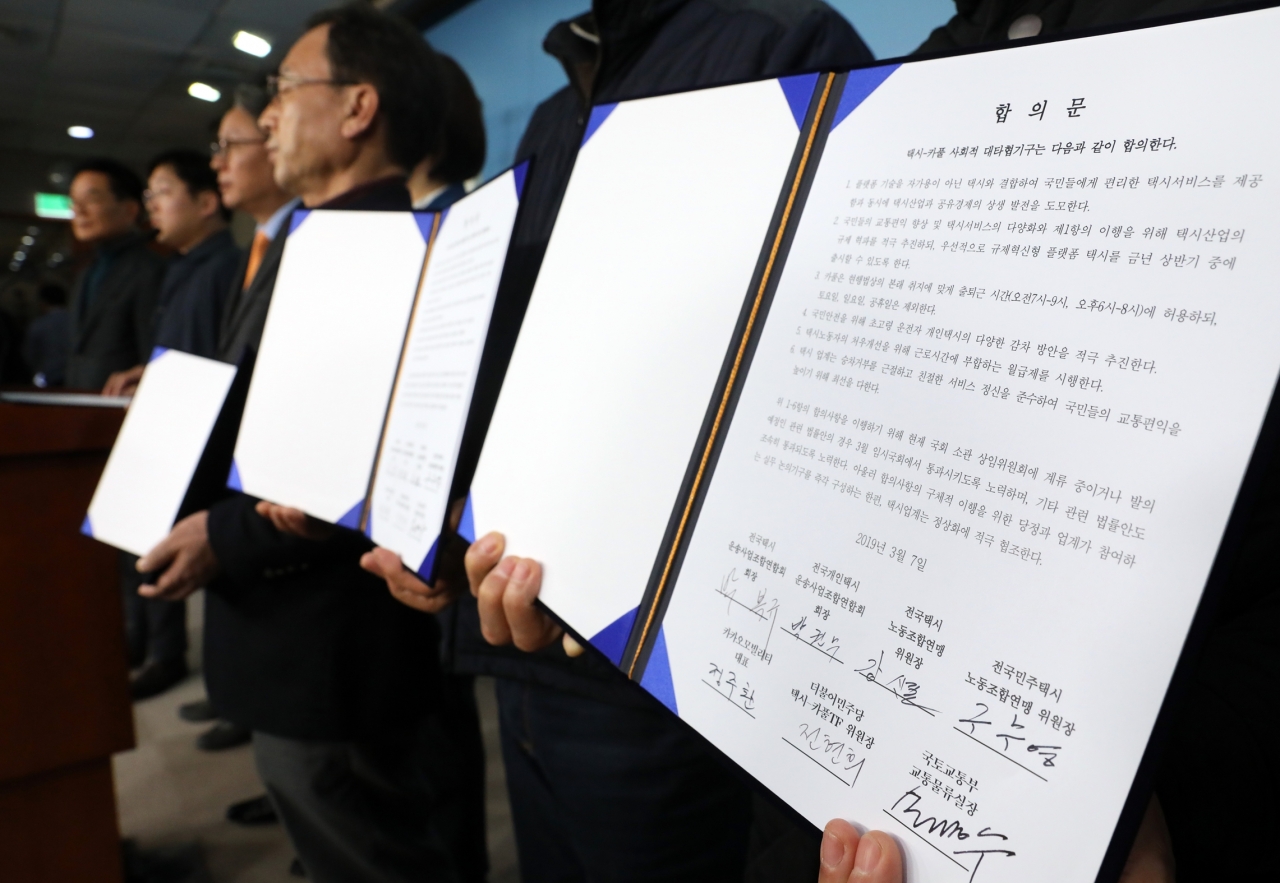 합 의 문
택시-카풀 사회적 대타협기구는 다음과 같이 합의한다.
1. 플랫폼 기술을 자가용이 아닌 택시와 결합하여 국민들에게 편리한 택시서비스를 제공
함과 동시에 택시산업과 공유경제의 상생 발전을 도모한다.
2. 국민들의 교통편익 향상 및 택시서비스의 다양화와 제1항의 이행을 위해 택시산업의
규제 혁파를 적극 추진하되, 우선적으로 규제혁신형 플랫폼 택시를 금년 상반기 중에
출시할 수 있도록 한다.
3. 카풀은 현행법상의 본래 취지에 맞게 출퇴근 시간(오전7시-9시, 오후6시-8시)에 허용하되,
토요일, 일요일, 공휴일은 제외한다.
4. 국민안전을 위해 초고령 운전자 개인택시의 다양한 감차 방안을 적극 추진한다.
5. 택시노동자의 처우개선을 위해 근로시간에 부합하는 월급제를 시행한다.
6. 택시 업계는 승차거부를 근절하고 친절한 서비스 정신을 준수하여 국민들의 교통편익을
높이기 위해 최선을 다한다.
위 1-6항의 합의사항을 이행하기 위해 현재 국회 소관 상임위원회에 계류 중이거나 발의
예정인 관련 법률안의 경우 3월 임시국회에서 통과시키도록 노력하며, 기타 관련 법률안도
조속히 통과되도록 노력한다. 아울러 합의사항의 구체적 이행을 위한 당정과 업계가 참여하
는 실무 논의기구를 즉각 구성하는 한편, 택시업계는 정상화에 적극 협조한다.
2019년 3월 7일
전국택시
운송사업조합연합회
회장
박복규
전국개인택시
운송사업조합연합회
회장
박권수
전국택시
노동조합연맹
위원장
강신표
전국민주택시
노동조합연맹 위원장
구수영
카카오모빌리티
대표
정주환
더불어민주당
택시-카풀TF 위원장
전현희
국토교통부
교통물류실장